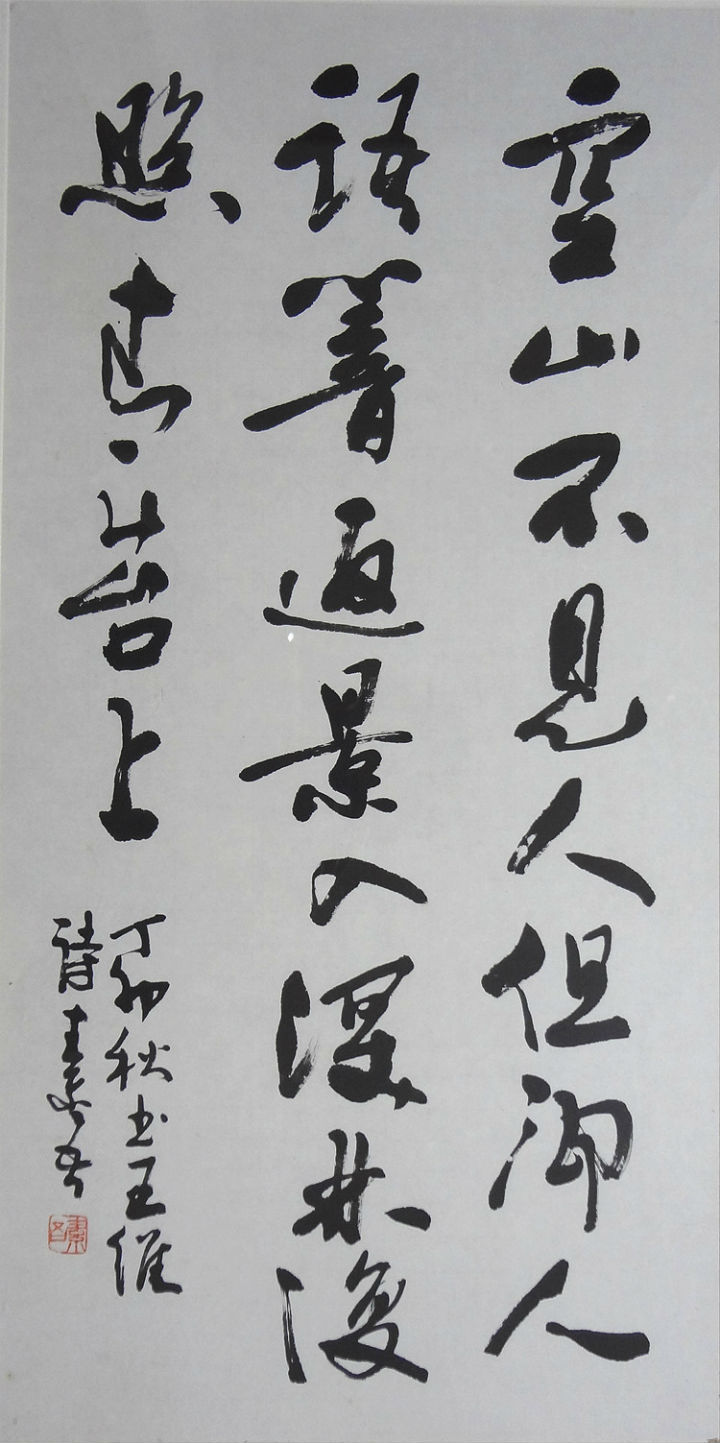 空山不見人但聞人
語響返景入深林復
照青苔上
丁卯秋书王維
詩素吾